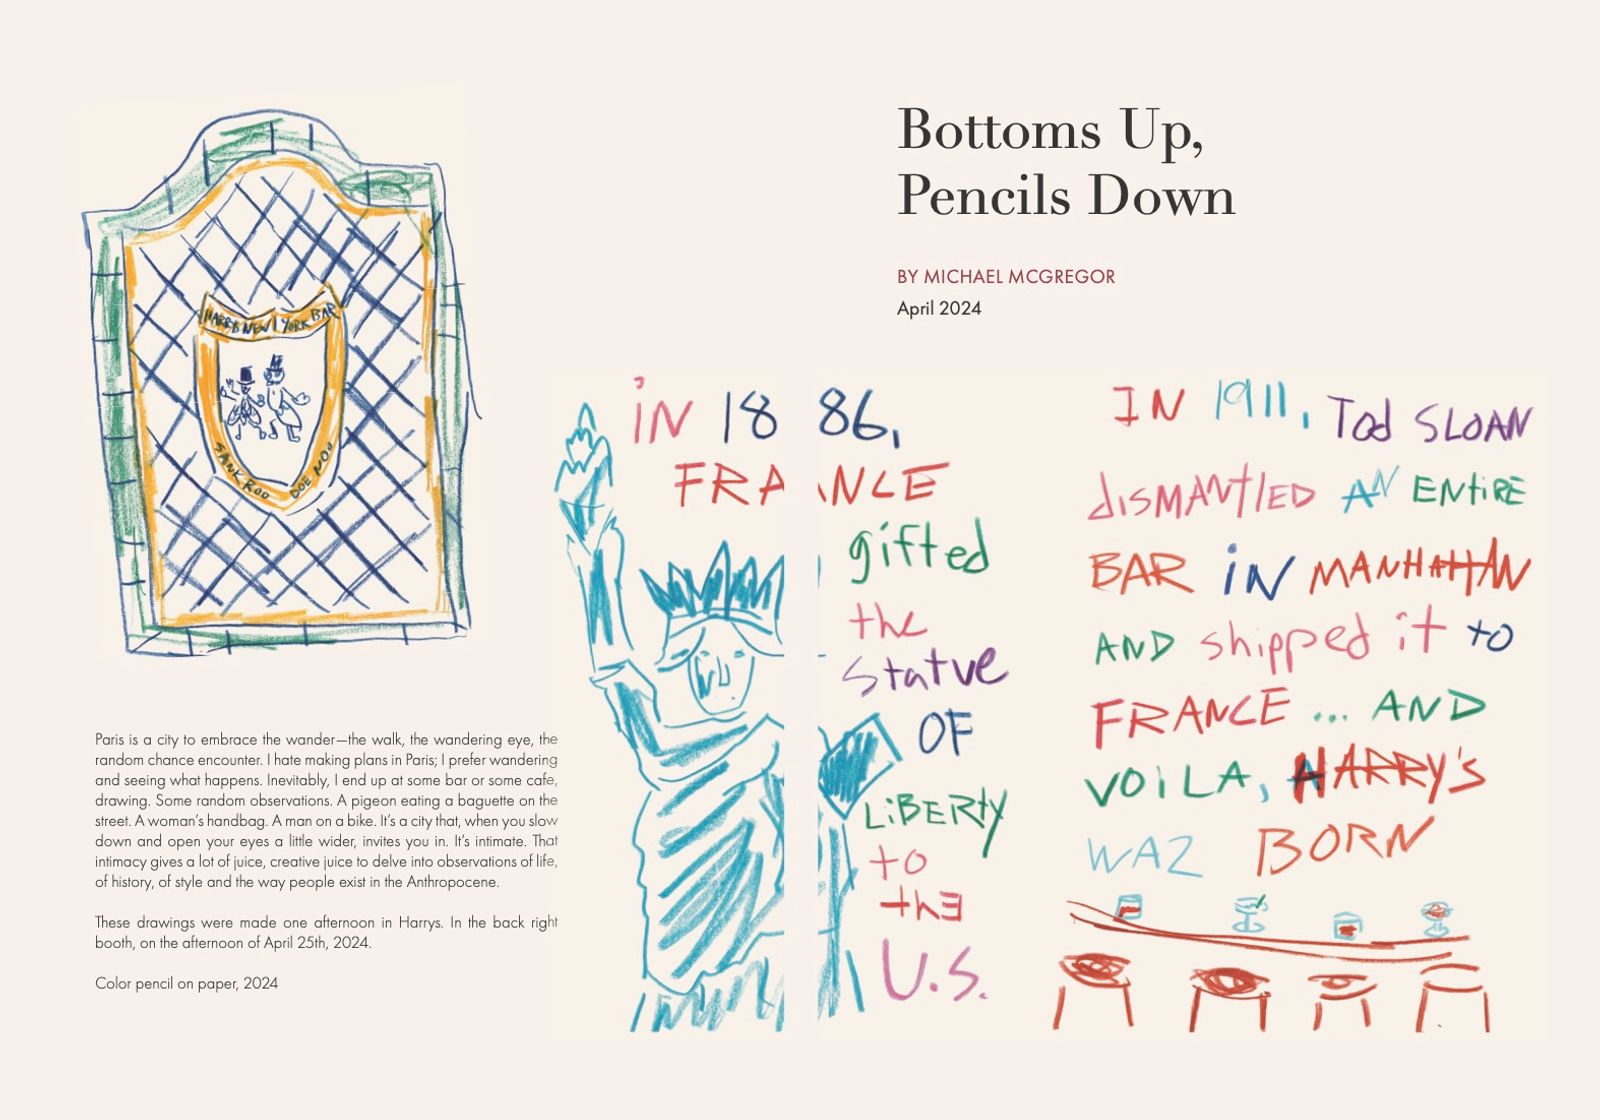 HARRY'S NEW YORK BAR
SANK ROO DOE NOO
Paris is a city to embrace the wander—the walk, the wandering eye, the
random chance encounter. I hate making plans in Paris; I prefer wandering
and seeing what happens. Inevitably, I end up at some bar or some cafe,
drawing. Some random observations. A pigeon eating a baguette on the
street. A woman's handbag. A man on a bike. It's a city that, when you slow
down and open your eyes a little wider, invites you in. It's intimate. That
intimacy gives a lot of juice, creative juice to delve into observations of life,
of history, of style and the way people exist in the Anthropocene.
These drawings were made one afternoon in Harrys. In the back right
booth, on the afternoon of April 25th, 2024.
Color pencil on paper, 2024
Bottoms Up,
Pencils Down
BY MICHAEL MCGREGOR
April 2024
iN 1886,
FRANCE
gifted
the
Statue
OF
LiBERTY
to
thE
U.S.
IN 1911, Tod SLOAN
dismANtlED AN ENtiRE
BAR iN MANHAttAN
AND shipped it to
FRANCE ... AND
VOiLA, HARRY's
WAZ BORN